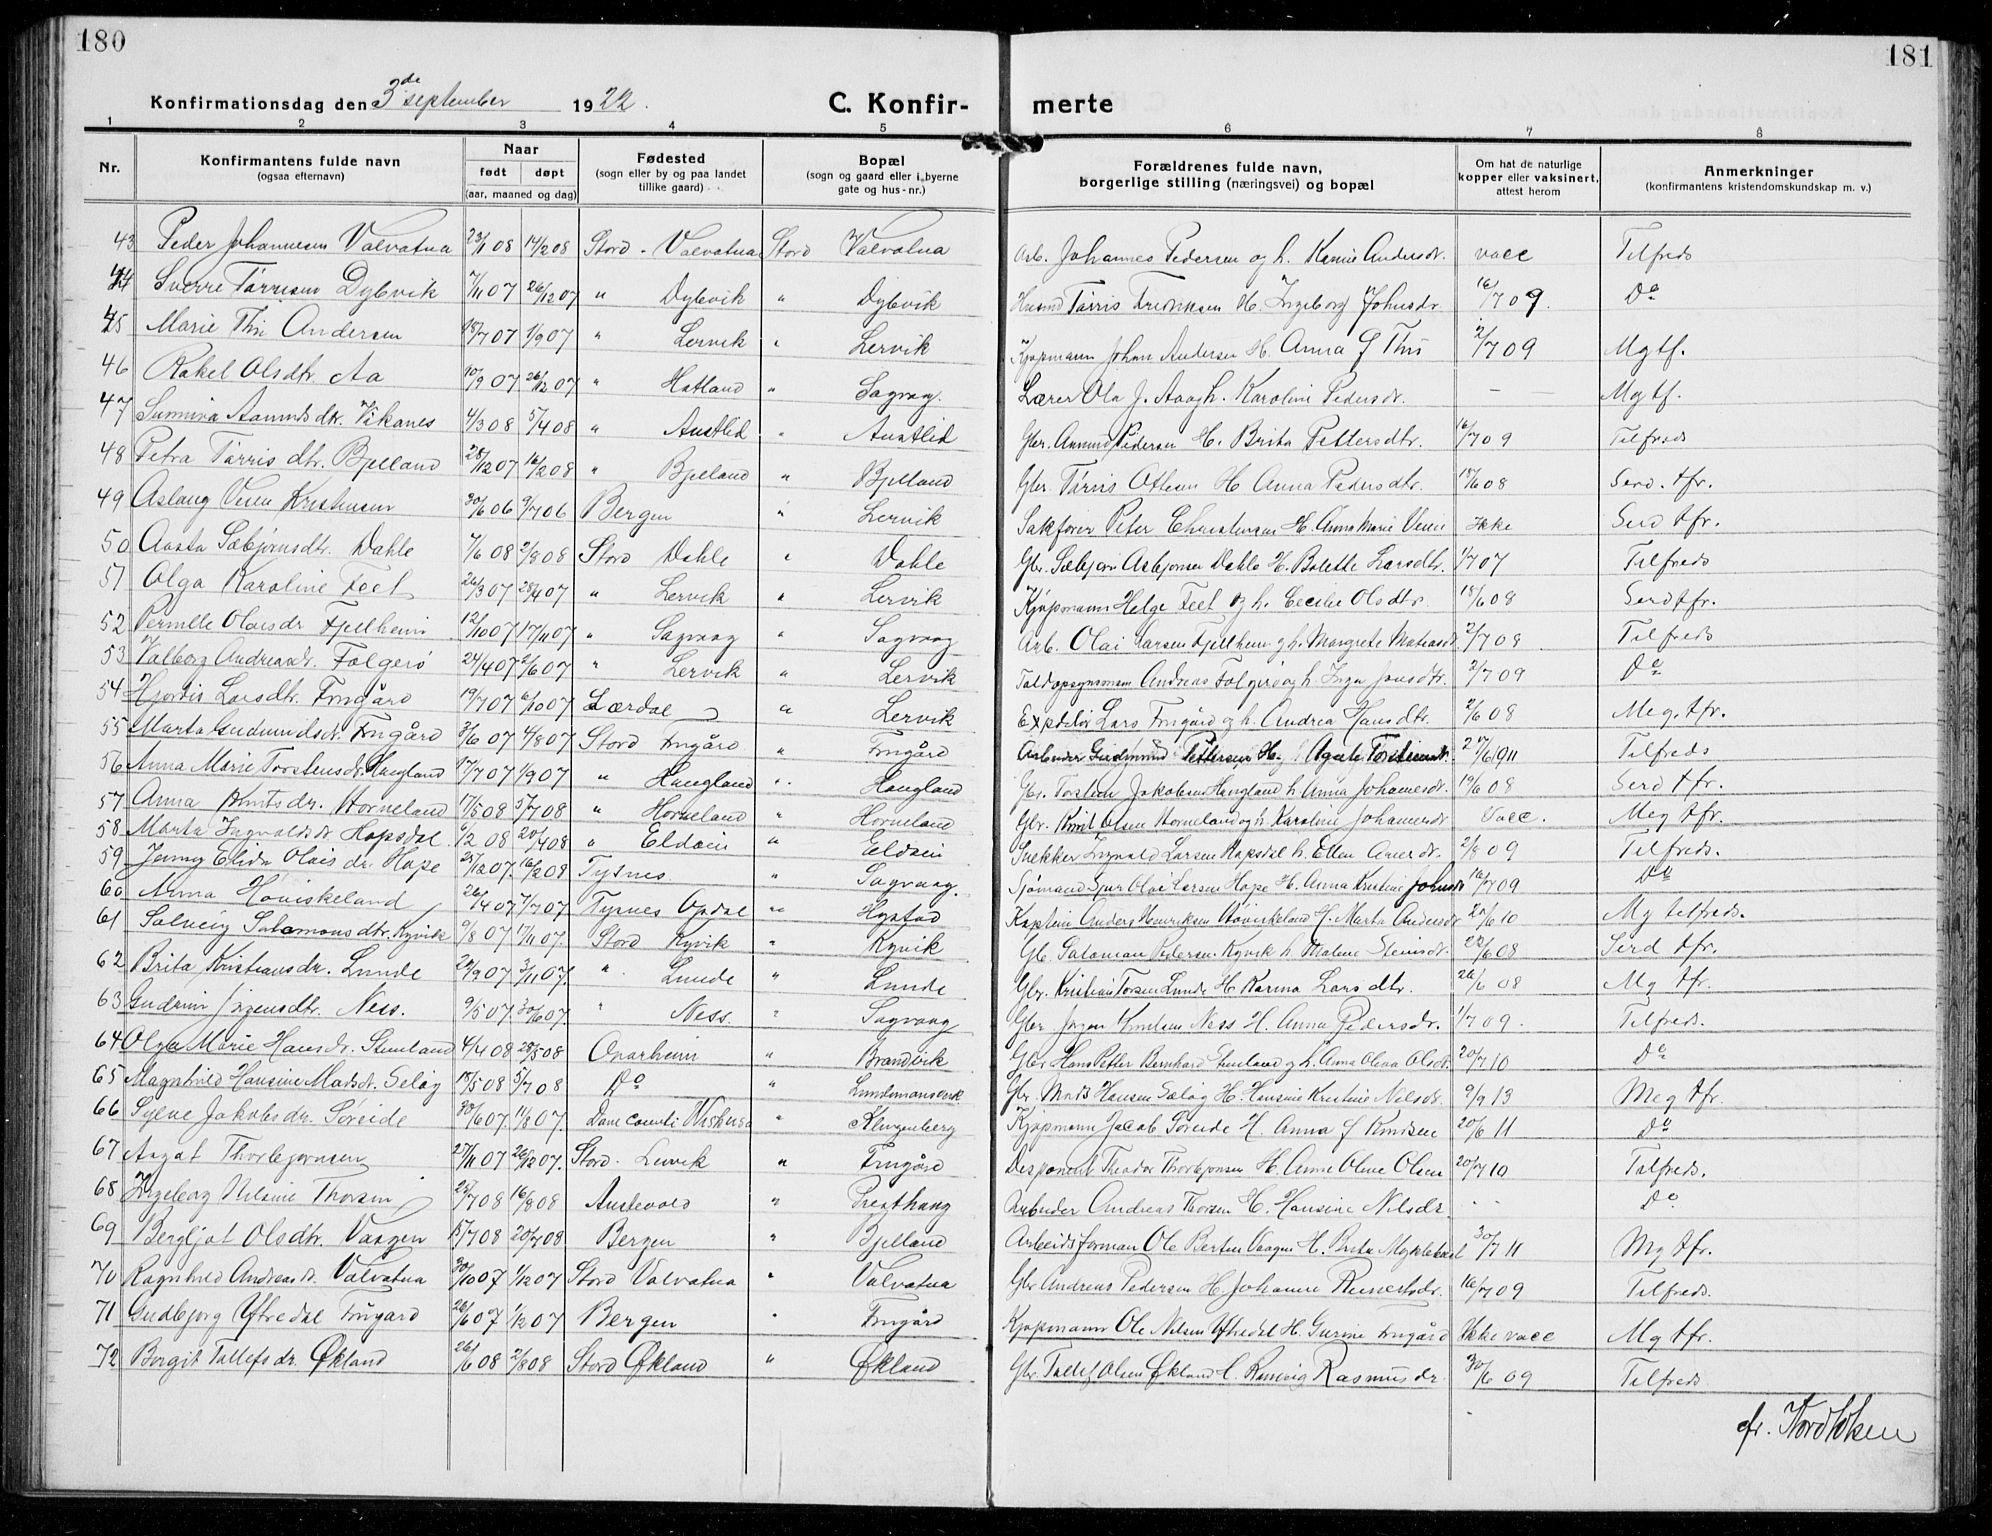 180
181
Konfirmationsdag den 3de september 1922.
C. Konfir- merte
1 2 3 4 5 6 7 8
Nr. Konfirmantens fulde navn (ogsaa efternavn) Naar født døpt (aar, maaned og dag) Fødested (sogn eller by og paa landet tillike gaard) Bopæl (sogn og gaard eller i byerne gate og hus-nr.) Forældrenes fulde navn, borgerlige stilling (næringsvei) og bopæl Om hat de naturlige kopper eller vaksinert, attest herom Anmerkninger (konfirmantens kristendomskundskap m. v.)
43 Peder Johannesen Valvatna 23/1 08 14/2 08 Stord - Valvatna Stord Valvatna Arb. Johannes Pedersen og h. Andersdr. vacc Tilfreds
44 Sverre Tørrisen Dybvik 7/11 07 26/12 07 " Dybvik " Dybvik Husmd Tørris Fredriksen H. Ingeborg Johnsdr 16/7 09. Do
45 Marie Thii Andersen 18/7 07 1/9 07 " Lervik " Lervik Kjøpmann Johan Andersen H. Anna f Thii 2/7 09 Mgtf.
46 Rakel Olsdtr. Aa 10/9 07 26/12 07 " Hatland " Sagvaag. Lærer Ola J. Aa og h. Karoline Pedersdr. — Mgtf.
47 Sunniva Aamundsdtr. Vikanes 4/3 08 5/4 08 " Austlid " Austlid Gbr. Aamund Pedersen H. Brita Pettersdtr. 16/7 09 Tilfreds
48 Petra Tørrisdtr. Bjelland 28/12 07 16/2 08 " Bjelland " Bjelland Gbr. Tørris Ottesen H Anna Pedersdtr. 18/6 08 Serd. tfr.
49 Aslaug Veien Kristensen 30/6 06 9/7 06 Bergen " Lervik Sakfører Peter Christensen H. Anna Marie Veien Ikke Serd tfr.
50 Aasta Sæbjørnsdtr. Dahle 7/6 08 2/8 08 Stord Dahle " Dahle Gbr. Sæbjørn Asbjønsen Dahle H. Bolette Larsdtr. 1/7 07 Tilfreds
51 Olga Karoline Feet 26/3 07 28/4 07 " Lervik " Lervik Kjøpmann Helge Feet og h. Cecilie Olsdtr. 18/6 08 Serd tfr.
52 Pernille Olaisdr. Fjellheim 12/10 07 17/11 07 " Sagvaag " Sagvaag Arb. Olai Larsen Fjellheim og h. Margrete 2/7 08 Tilfreds
53 Valborg Andreasdr. Følgerø 24/4 07 2/6 07 " Lervik " Lervik Andreas Følgerø og h. Inga Jonsdtr. 2/7 09 Do
54 Hjørdis Larsdtr. Frugård 19/7 07 6/10 07 Lærdal " Lervik Expeditør Lars Frugård og h. Andrea Hansdtr. 2/6 08 Meg. tfr.
55 Marta Gudmundsdr. Frugård 3/6 07 4/8 07 Stord Frugård " Frugård Arbeider Gudmund Pettersen H. Agate 27/6 1911 Tilfreds
56 Anna Marie Torstensdr. Haugland 17/7 07 1/9 07 " Haugland " Haugland Gbr. Torstein Jakobsen Haugland h. Anna Johanesdr. 19/6 08 Serd tfr.
57 Anna Knutsdr. Horneland 17/5 08 5/7 08 " Horneland " Horneland Gbr. Knut Olsen Horneland og h Karoline Johannesdr Vacc. Meg tfr.
58 Marta Ingvaldsdr Hopsdal 6/2 08 20/4 08 " Eldøen " Eldøen Snekker Ingvald Larsen Hopsdal h. Ellen 2/8 09 Tilfreds.
59 Jenny Elida Olaisdr. Hope 25/12 07. 16/2 08 Tysnes " Sagvaag. Sjømand Olai Larsen Hope H. Anna Kristine Johnsdr 16/7 09 Do
60 Anna Høviskeland 26/4 07 7/7 07 Tysnes Opdal " Hystad Kaptein Anders Henriksen Høviskeland H. Marta Andersdr 20/6 10 Mg tilfreds.
61 Solveig Salomonsdtr. Kyvik 9/8 07 17/11 07. Stord Kyvik " Kyvik Gb. Salomon Pedersen Kyvik h. Malene 22/6 08 Serd tfr.
62 Brita Kristiansdr. Lunde 20/9 07 3/11 07. " Lunde " Lunde Gbr. Kristian Torsen Lunde H Karina Larsdtr. 26/6 08 Mg tfr.
63 Gudrun Jørgensdtr. Ness. 9/5 07. 30/6 07. " Ness. " Sagvaag Gbr Jørgen Knutsen Ness H. Anna Pedersdr. 1/7 09. Tilfreds.
64 Olga Marie Hansdr. Stenland 4/4 08 28/5 08 Onarheim " Brandvik Gbr Hans Petter Bernhard Stenland og h. Anna Olina Olsdr. 20/7 10 Do
65 Magnhild Hansine Madsdr. Seløg 18/5 08 5/7 08 Do " Lundemansverk Gbr. Mads Hansen Seløg H. Hansine Kristine Nilsdr. 9/9 13 Meg tfr.
66 Sylve Jakobsdr. Søreide 30/6 07. 11/8 07. Dane County " Klingenberg Kjøpmann Jacob Søreide H. Anna f Knudsen 20/6 11 Do
67 Aagot Thorbjørnsen 27/11 07 26/12 07. Stord. Lervik " Frugård Disponent Theodor Thorbjønsen H. Anne Oline Olsen 20/7 10 Tilfreds.
68 Ingeborg Nilsine Thorsen 25/7 08 16/8 08 Austevold " Presthaug Arbeider Andreas Thorsen H. Hansine Nilsdr. - - Do
69 Bergljot Olsdtr. Vaagen 15/7 08 20/7 08 Bergen " Bjelland Arbeidsforman Ole Berten Vaagen H. Brita Myklebust 30/7 11 Mg tfr.
70 Ragnhild Andreasdr. Valvatna 30/10 07 1/12 07 Stord Valvatna " Valvatna Gbr Andreas Pedersen H. Johanne 16/7 09 Tilfreds.
71 Gudbjørg Yttredal Frugård 26/6 07 1/12 07 Bergen " Frugård Kjøpmann Ole Nilsen Yttredal H. Gurine Frugård Ikke vacc Mg tfr.
72 Borgit Tollefsdr. Økland 26/6 08 2/8 08 Stord Økland " Økland Gbr. Tollef Olsen Økland H. Rasmusdr 30/6 09 Tilfreds